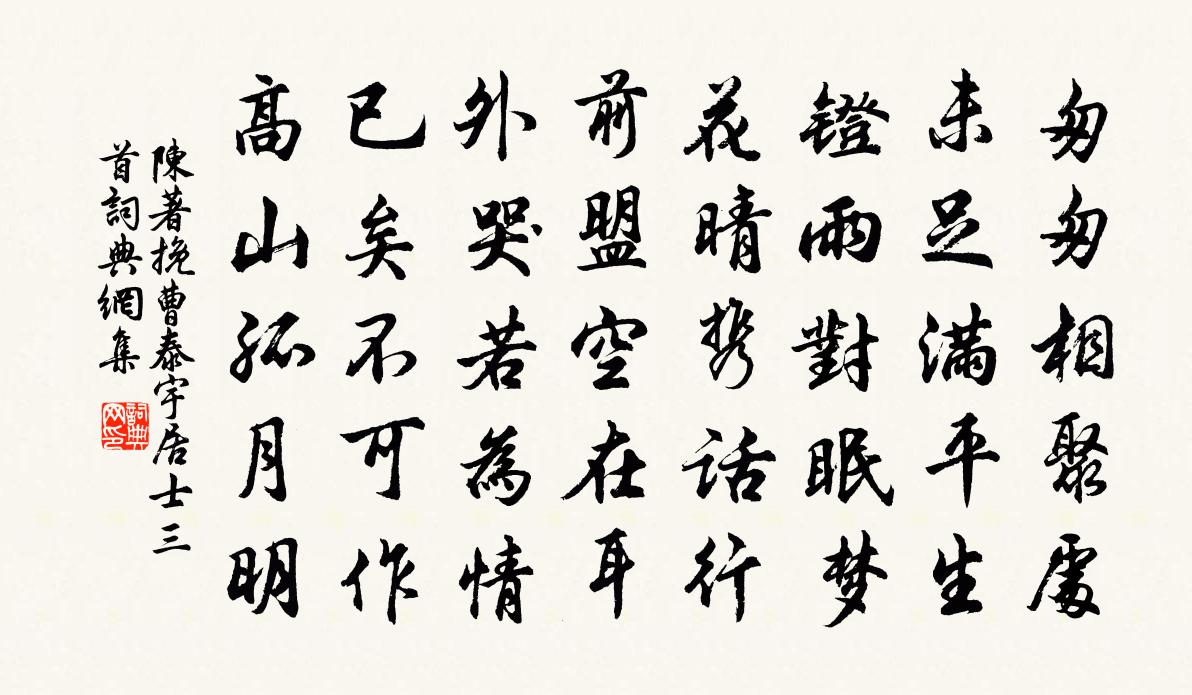 匆匆相聚處
未足滿平生
鐙雨對眠梦
花晴携話行
前盟空在耳
外哭若為情
已矣不可作
高山孤月明
陳著挽曹泰宇居士三
首詞典網集
詞典
网印